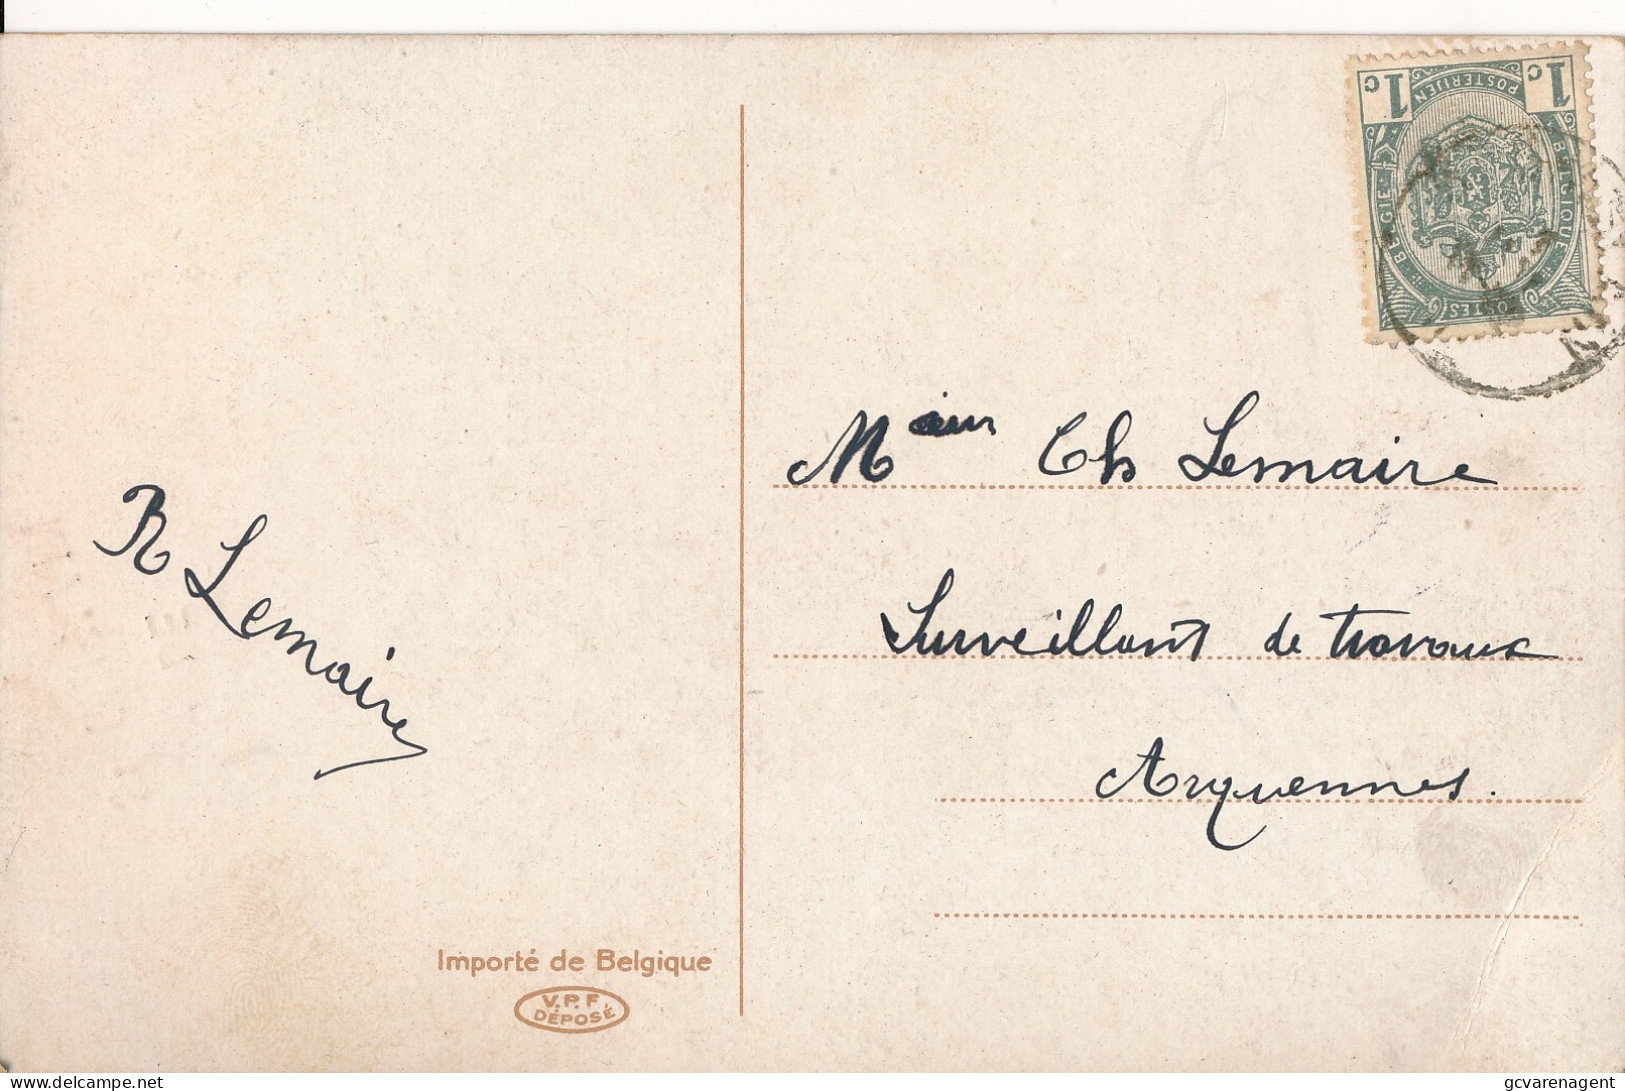 1c 1c
POSTERIJEN
BELGIE BELGIQUE
POSTES
Msieur Ch Lemaire
Surveillant de travaux
Arquennes.
R Lemaire
Importé de Belgique
V.P.F.
DÉPOSÉ
delcampe.net
gcvarenagent